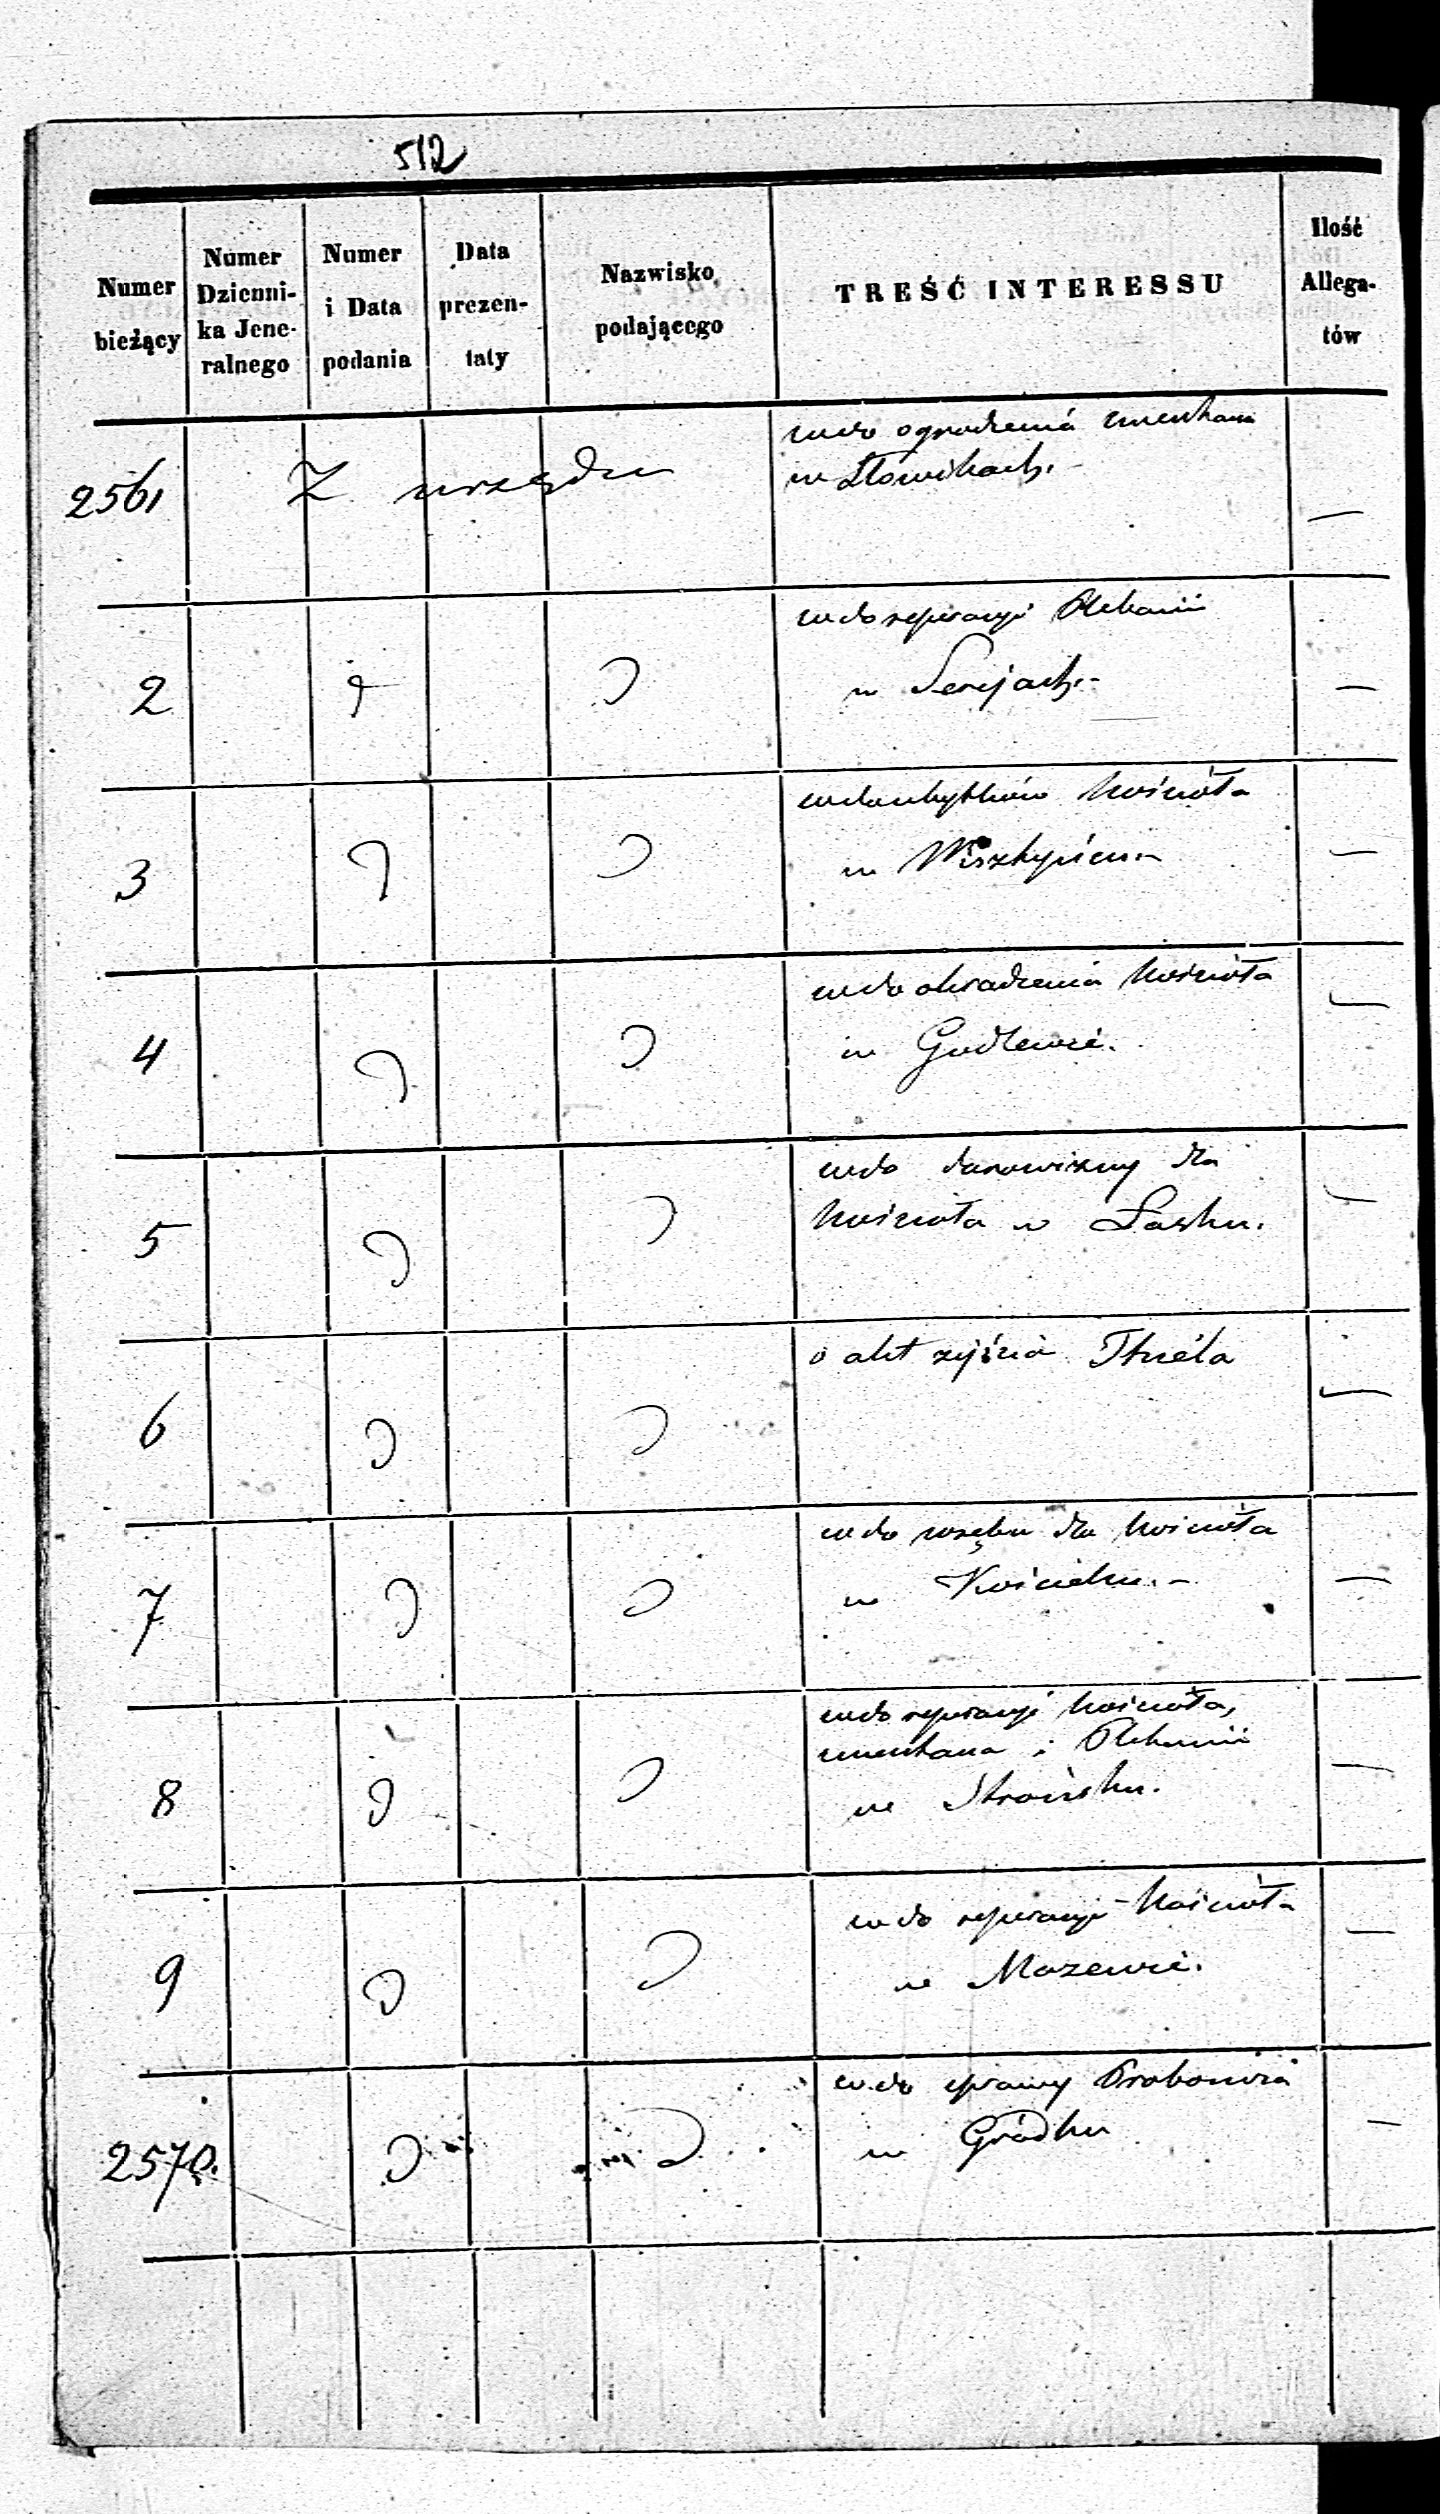 512
Numer bieżący
Numer Dzienni- ka Jene- ralnego
Numer i Data podania
Data prezen- taty
Nazwisko podającego
TREŚĆ INTERESSU
Ilość Allega- tów
2561 Z urzędu wzdo ogrodzenia cmentarza —
w Słowikach.-
2 wzdo reperacyi Plebanii —
w Serejach.-
3 Kościoła —
w Wisztyńcu.-
4 wzdo okradzenia Kościoła —
w Godlewie.
5 wzdo darowizny dla —
Kościoła w Łasku.
6 o akt zejścia Thiela —
7 wzdo wrębu dla Kościoła —
w Kościelcu.-
8 wzdo reperacyi Kościoła, —
cmentarza i Plebanii
w Strońsku.
9 wzdo reperacyi Kościoła —
w Mazewie.
2570. wzdo sprawy Probostwa —
w Gródku